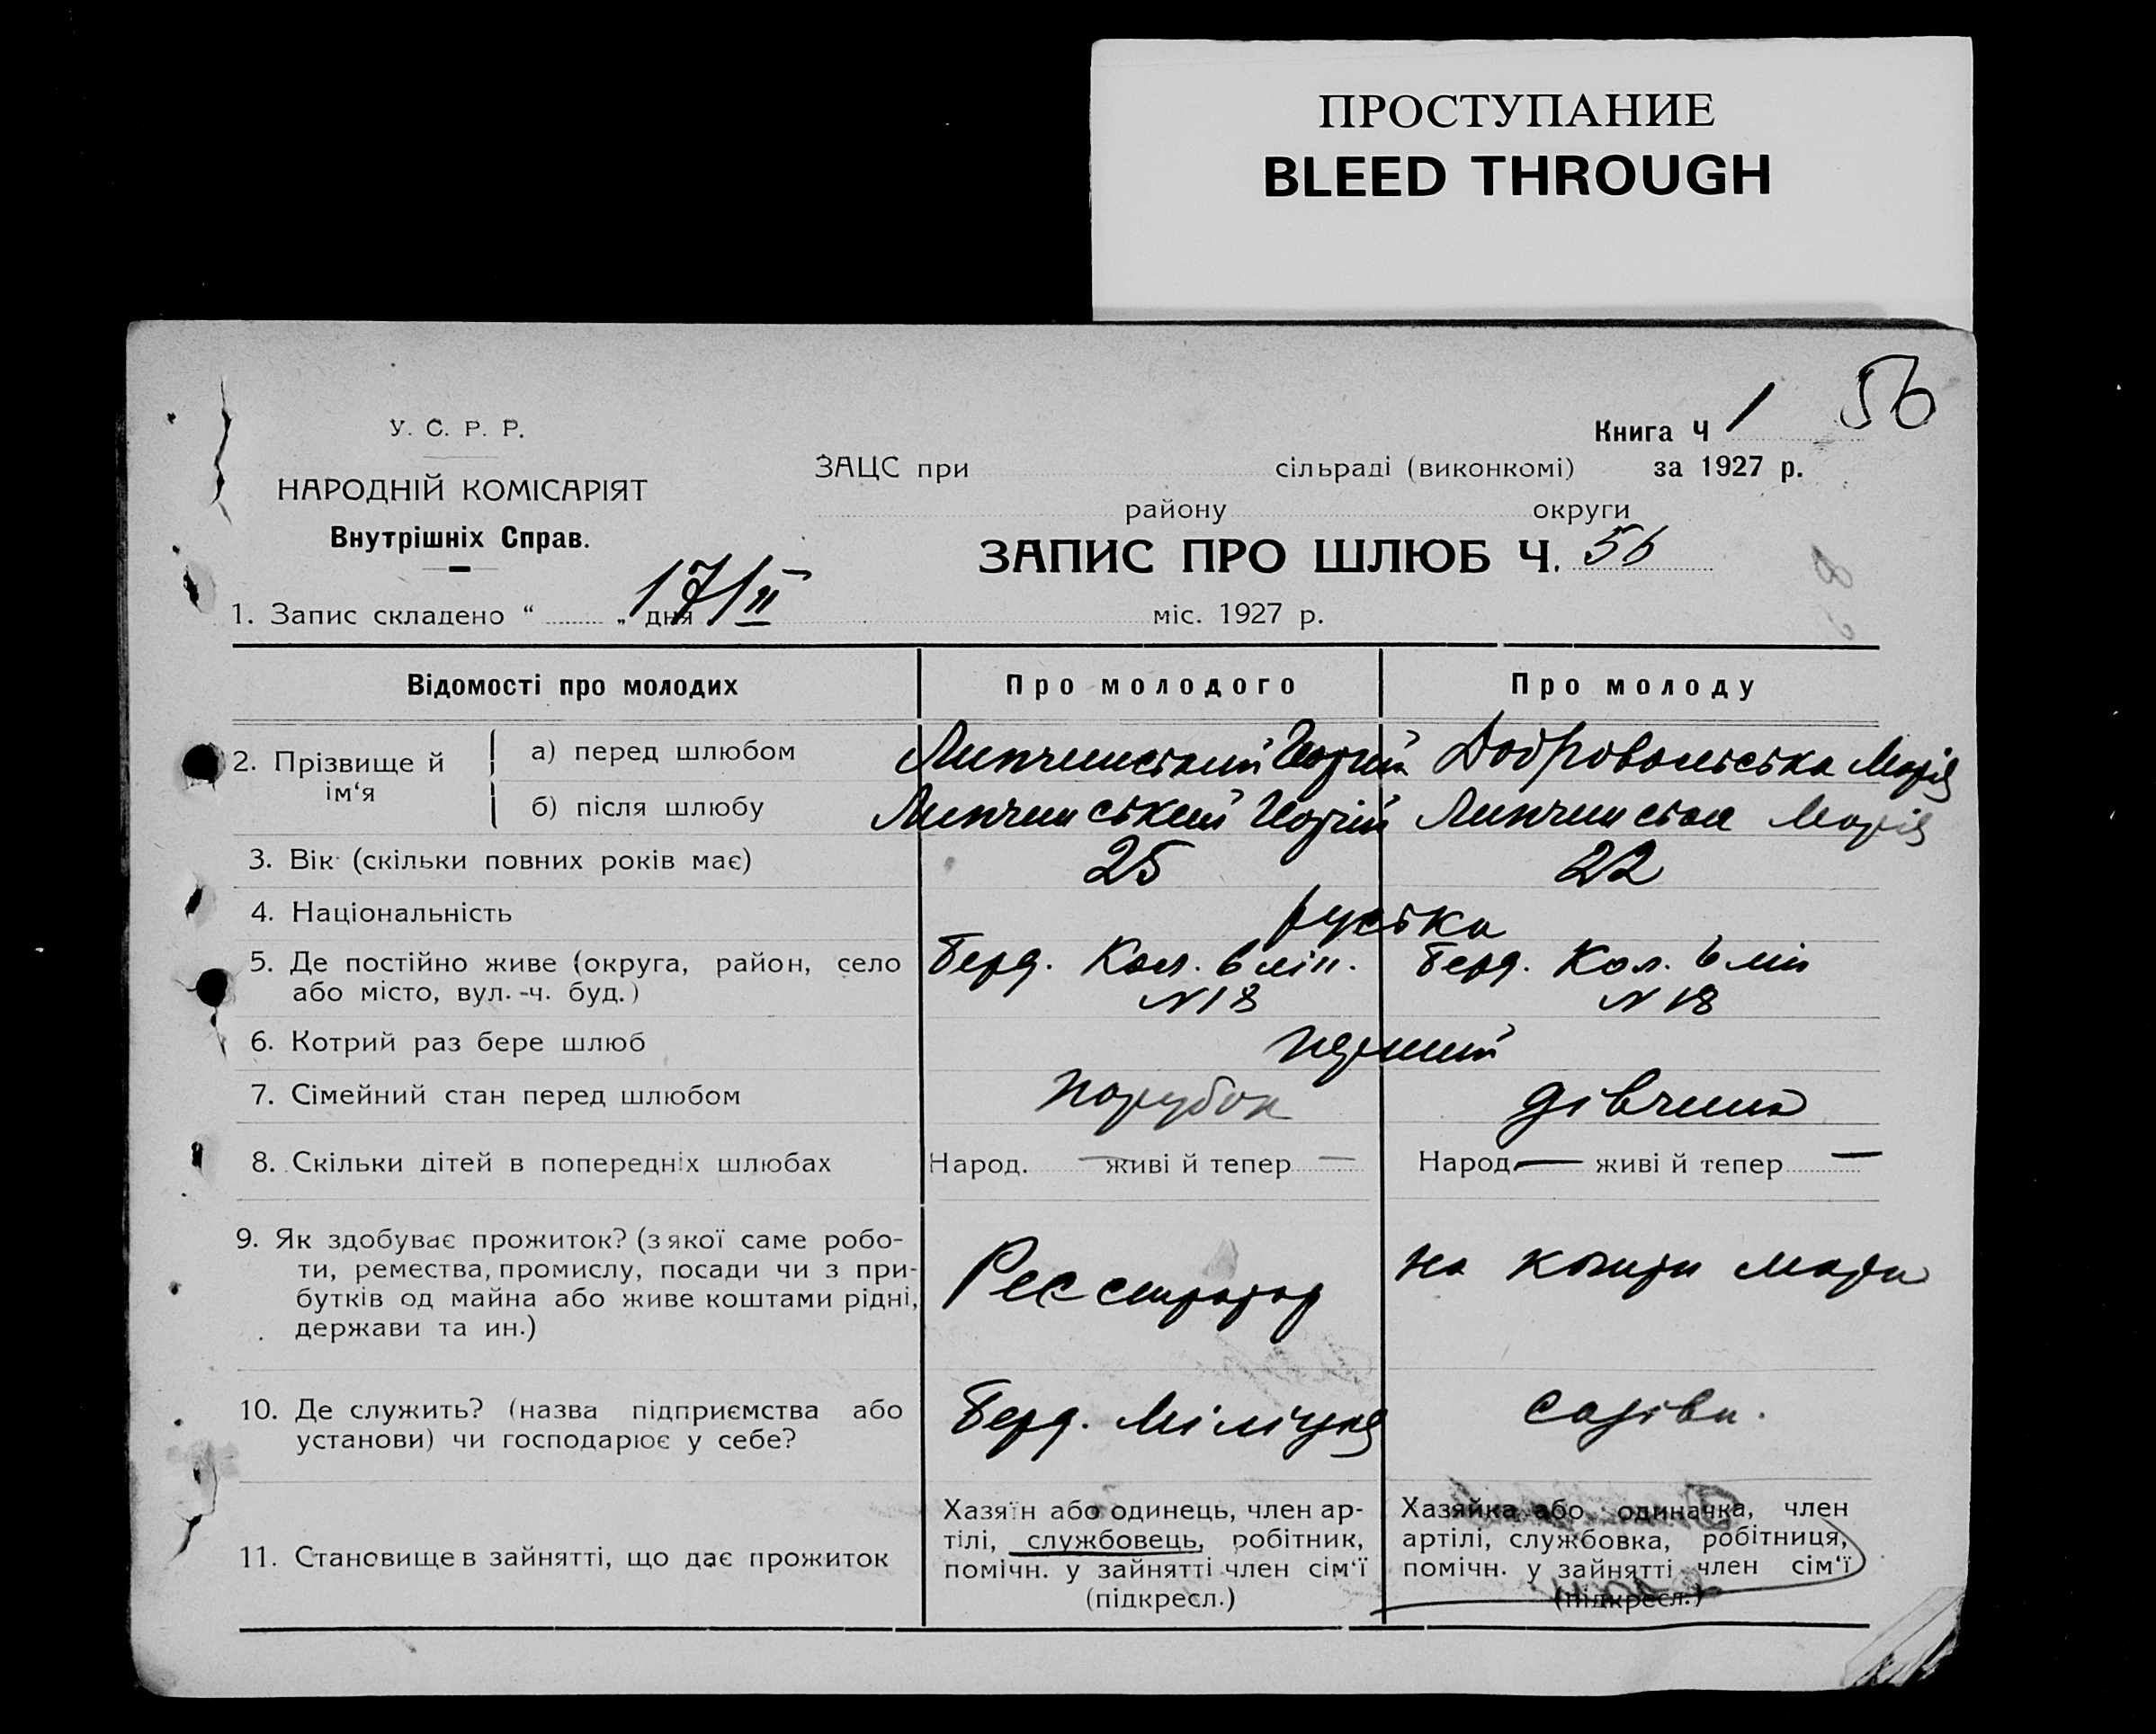 ПРОСТУПАНИЕ
BLEED THROUGH
56
У. С. Р. Р.
Книга Ч 1
НАРОДНІЙ КОМІСАРІЯТ
ЗАЦС при сільраді (виконкомі) за 1927 р.
Внутрішніх Справ.
району округи
ЗАПИС ПРО ШЛЮБ Ч. 56
1. Запис складено “ „ дня 17/II міс. 1927 р.
Відомості про молодих Про молодого Про молоду
2. Прізвище й ім‘я
а) перед шлюбом Липчинський Георгій Добровольська Марія
б) після шлюбу Липчинський Георгій Липчинська Марія
3. Вік (скільки повних років має) 25 22
4. Національність руська
5. Де постійно живе (округа, район, село Берд. Кол. 6 лін. Берд. Кол. 6 лін
або місто, вул.-ч. буд.) N 18 N 18
6. Котрий раз бере шлюб перший
7. Сімейний стан перед шлюбом парубок дівчина
8. Скільки дітей в попередніх шлюбах Народ. — живі й тепер — Народ — живі й тепер —
9. Як здобуває прожиток? (з якої саме робо-
ти, ремества, промислу, посади чи з при-
бутків од майна або живе коштами рідні,
держави та ин.)
на кошти
10. Де служить? (назва підприємства або
установи) чи господарює у себе?
Берд. Міліція
11. Становище в зайнятті, що дає прожиток
Хазяїн або одинець, член ар-
тілі, службовець, робітник,
помічн. у зайнятті член сім‘ї
(підкресл.)
Хазяйка або одиначка, член
артілі, службовка, робітниця,
помічн. у зайнятті член сім‘ї
(підкресл.)